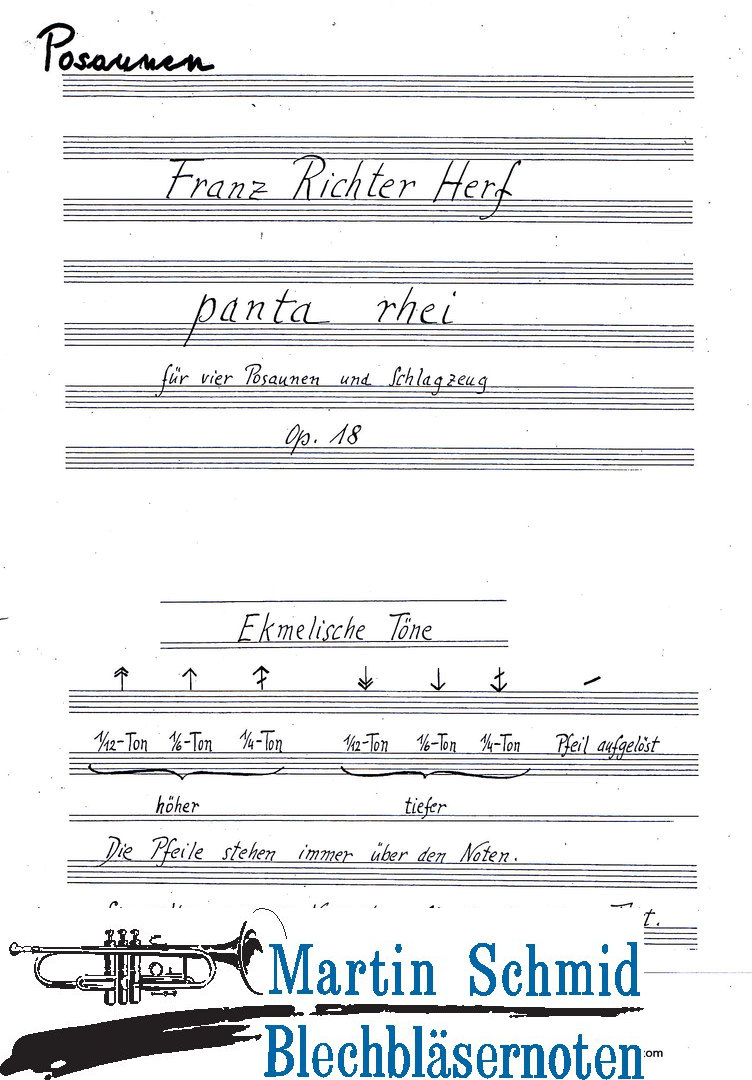 Posaunen
Franz Richter Herf
panta rhei
für vier Posaunen und Schlagzeug
Op. 18
Ekmelische Töne
1/12-Ton 1/6-Ton 1/4-Ton 1/12-Ton 1/6-Ton 1/4-Ton Pfeil aufgelöst
höher tiefer
Die Pfeile stehen immer über den Noten.
Martin Schmid
Blechbläsernoten